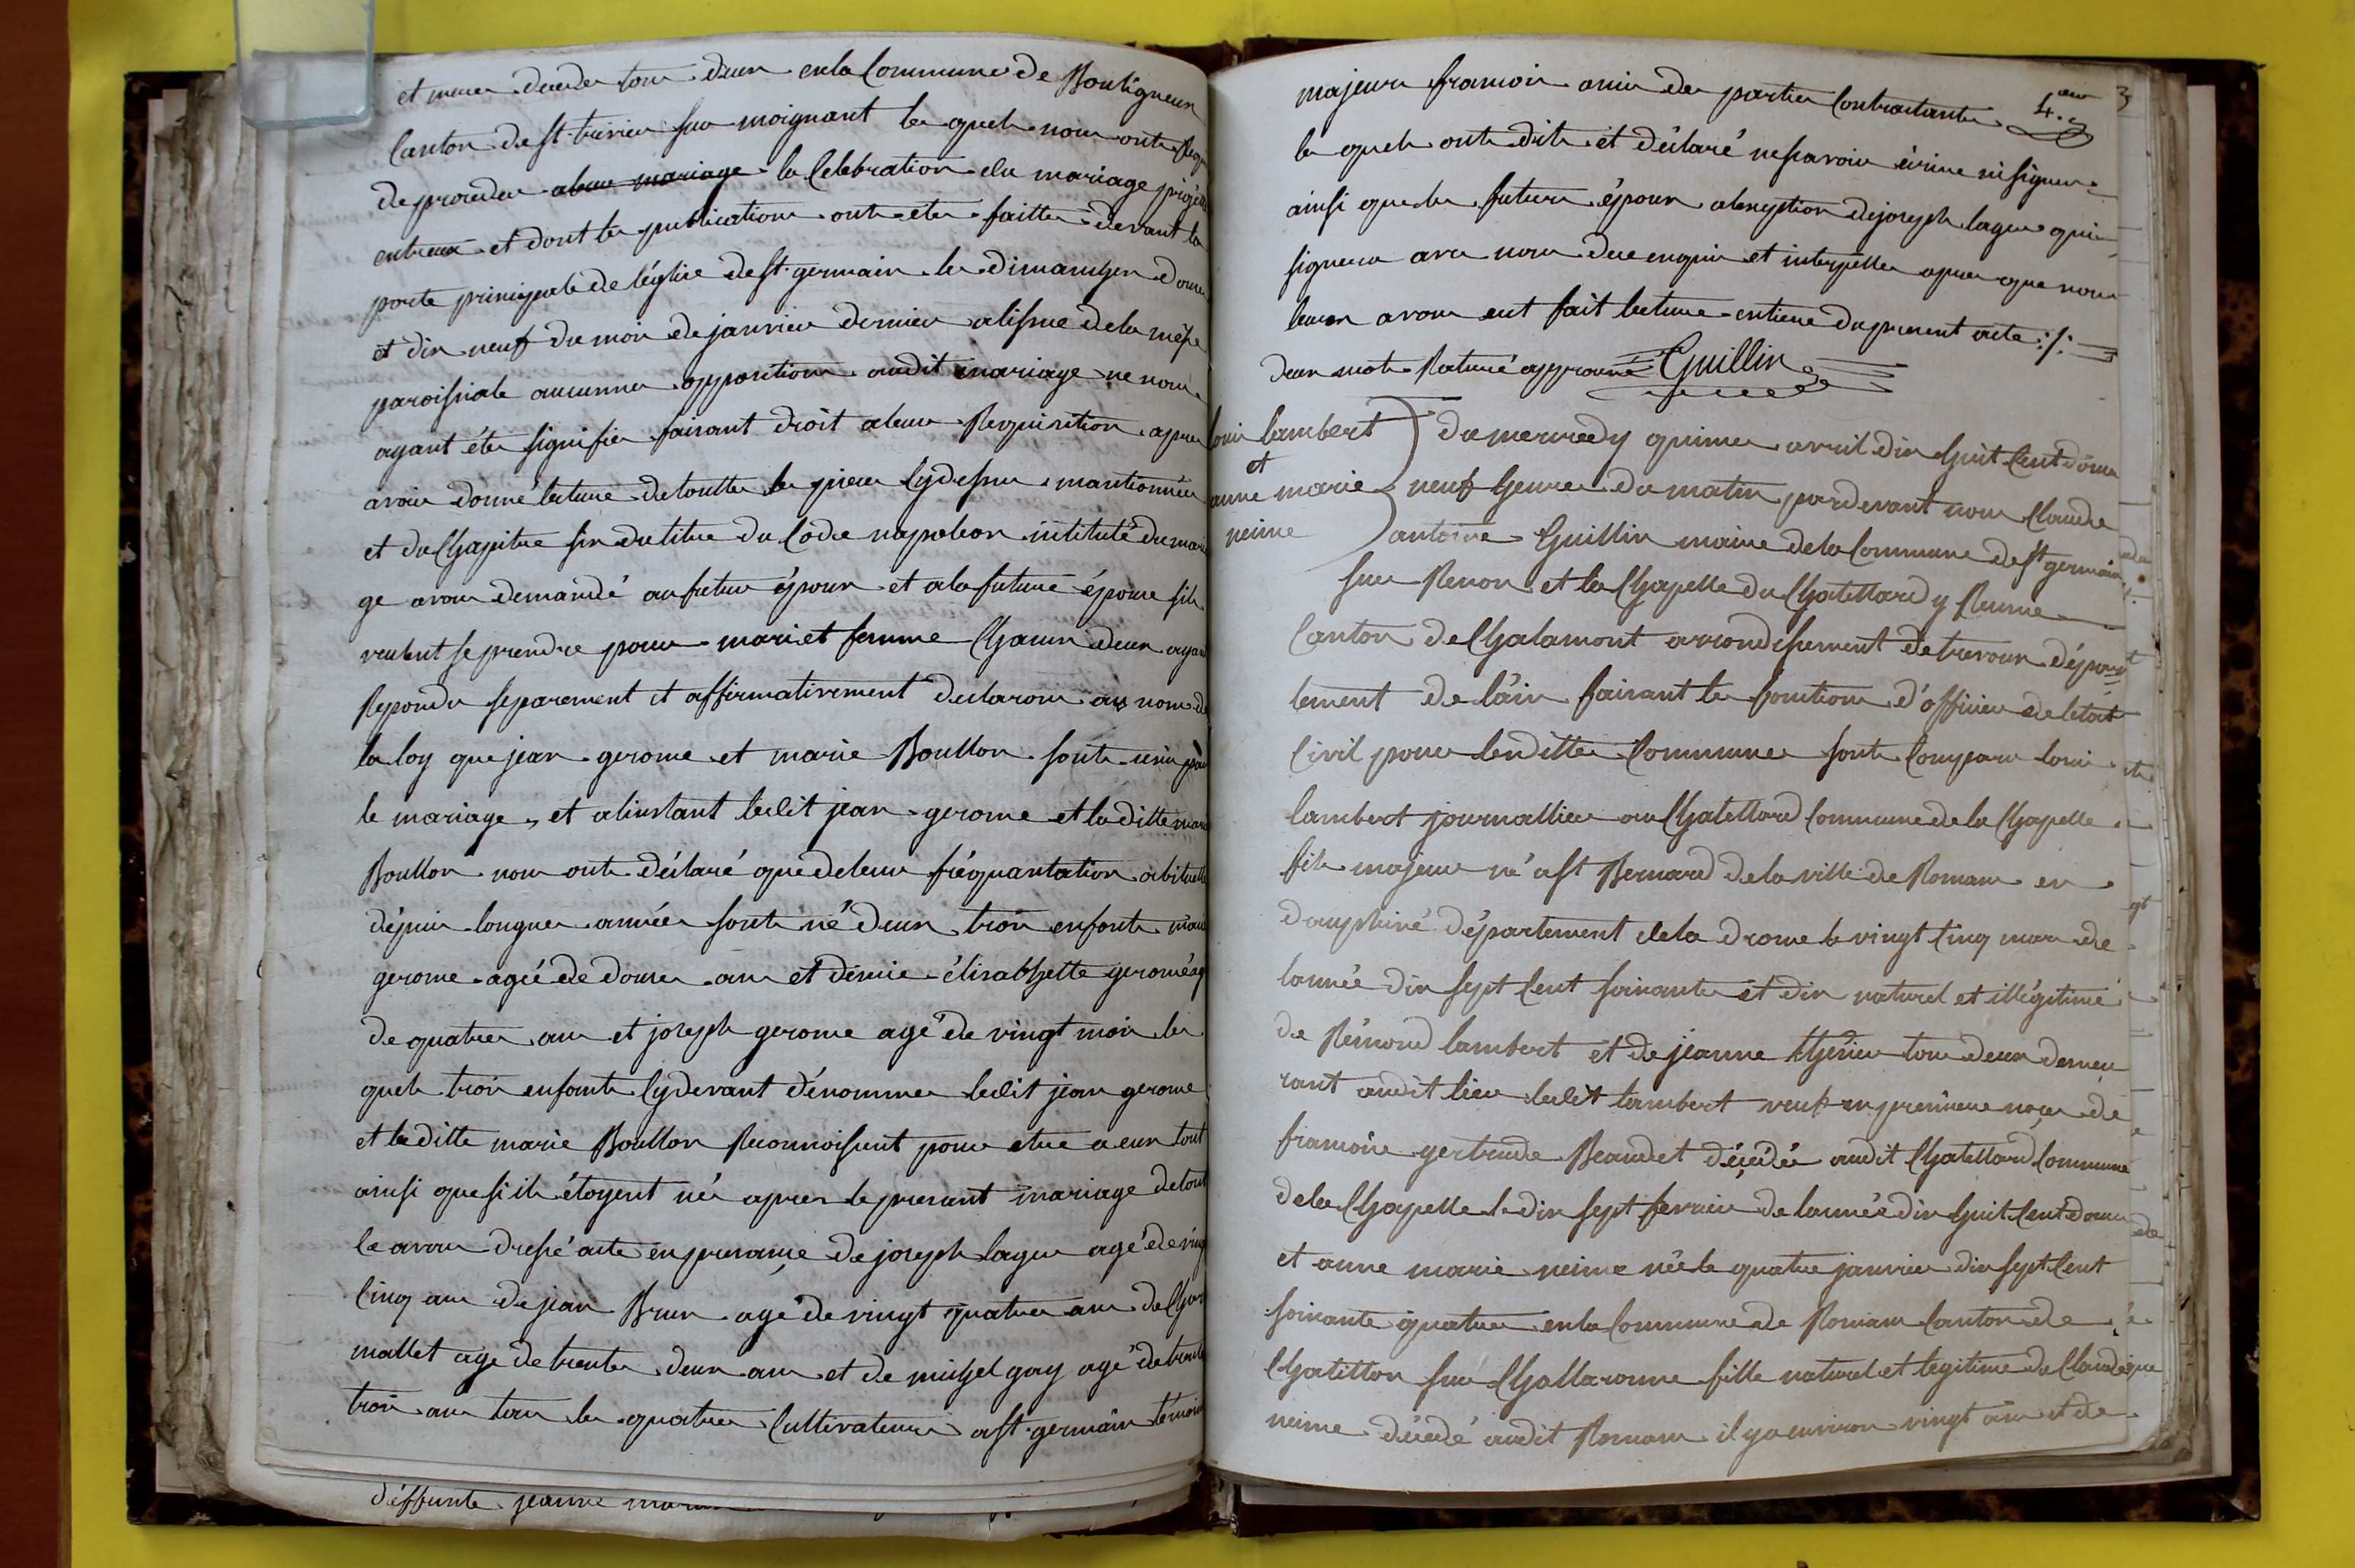 et mere decedes tous deux en la Commune de Bouligneux
Canton de st trivier sur moignant les quels nous onts
de proceder a leur mariage la Celebration du mariage projetté
entreux et dont les publications onts étés faittes devant la
porte principale de léglise de st germain les dimanches douze
et dix neuf du mois de janvier dernier a lissue de la messe
paroissiale aucunnes oppositions audit mariage ne nous
ayant étés signifiés faisant droit a leur Requisition apres
avoir donné lecture de touttes les pieces Cydessus mantionnées
et du Chapitre six du titre du Code napoleon intitulé du maria
ge avons demandé au futur époux et a la future épouse sils
veulent se prendre pour mari et femme Chacun deux ayant
Repondu séparement et affirmativement declarons au nom de
la loy que jean gerome et marie Boullon sonts unis par
le mariage, et a linstant ledit jean gerome et la ditte marie
Boullon nous onts déclaré que de leur fréquantation abituelle
dépuis longues années sonts né deux trois enfants marie
gerome agée de douze ans et démie élisabhette gerome agé
de quatres ans et joseph gerome agé de vingt mois les
quels trois enfants Cydevant dénommes ledit jean gerome
et la ditte marie Boullon Reconnoissent pour etre a eux tout
ainsi que si ils étoyent nés apres le present mariage de tout
ce avons dressé acte en presance de joseph lager agé de vingt
Cinq ans de jean Brun agé de vingt quatres ans de
mallet agé de trentes deux ans et de michel gay agé de trente
trois ans tous les quatres Cultivateurs a st germain témoins
déffunte jeanne
majeurs francois amis des parties Contractantes 4.eme 3
les quels onts dits et déclaré ne savoir écrire ni signer
ainsi que les futurs époux a lexception de joseph lager qui
signera avec nous de ce enquis et interpellés apres que nous
leurs avons eut fait lecture entiere du present acte ./.
deux mots Raturé approuvé Guillin
louis lambert
et
anne marie
neime
du mercredy quinze avril dix huit Cent douze
neuf heures du matin pardevant nous Claude
antoine Guillin maire de la Commune de st germain
sur Renon et la Chapelle du Chatellard y Reunie
Canton de Chalamont arrondissement de trevoux dépar
tement de lain faisant les fonctions d'officier de letat
Civil pour lesdittes Communes sonts Comparu louis
lambert journallier au Chatellard Commune de la Chapelle
fils majeur né a st Bernard de la ville de Romans en
dauphiné département de la drome le vingt Cinq mars de
lannée dix sept Cent soixante et dix naturel et illégitime
de Rémond lambert et de jeanne tous deux demeu
rant audit lieu ledit lambert veuf en premiere noces de
francoise gertrude Beaudet décédée audit Chatellard Commune
de la Chapelle le dix sept fevrier de lannée dix huit Cent douze
et anne marie neime née le quatre janvier dix sept Cent
soixante quatres en la Commune de Romans Canton de
Chatillon sur Challaronne fille naturel et legitime de Claude
neime décédé audit Romans il y a environ vingt ans et de